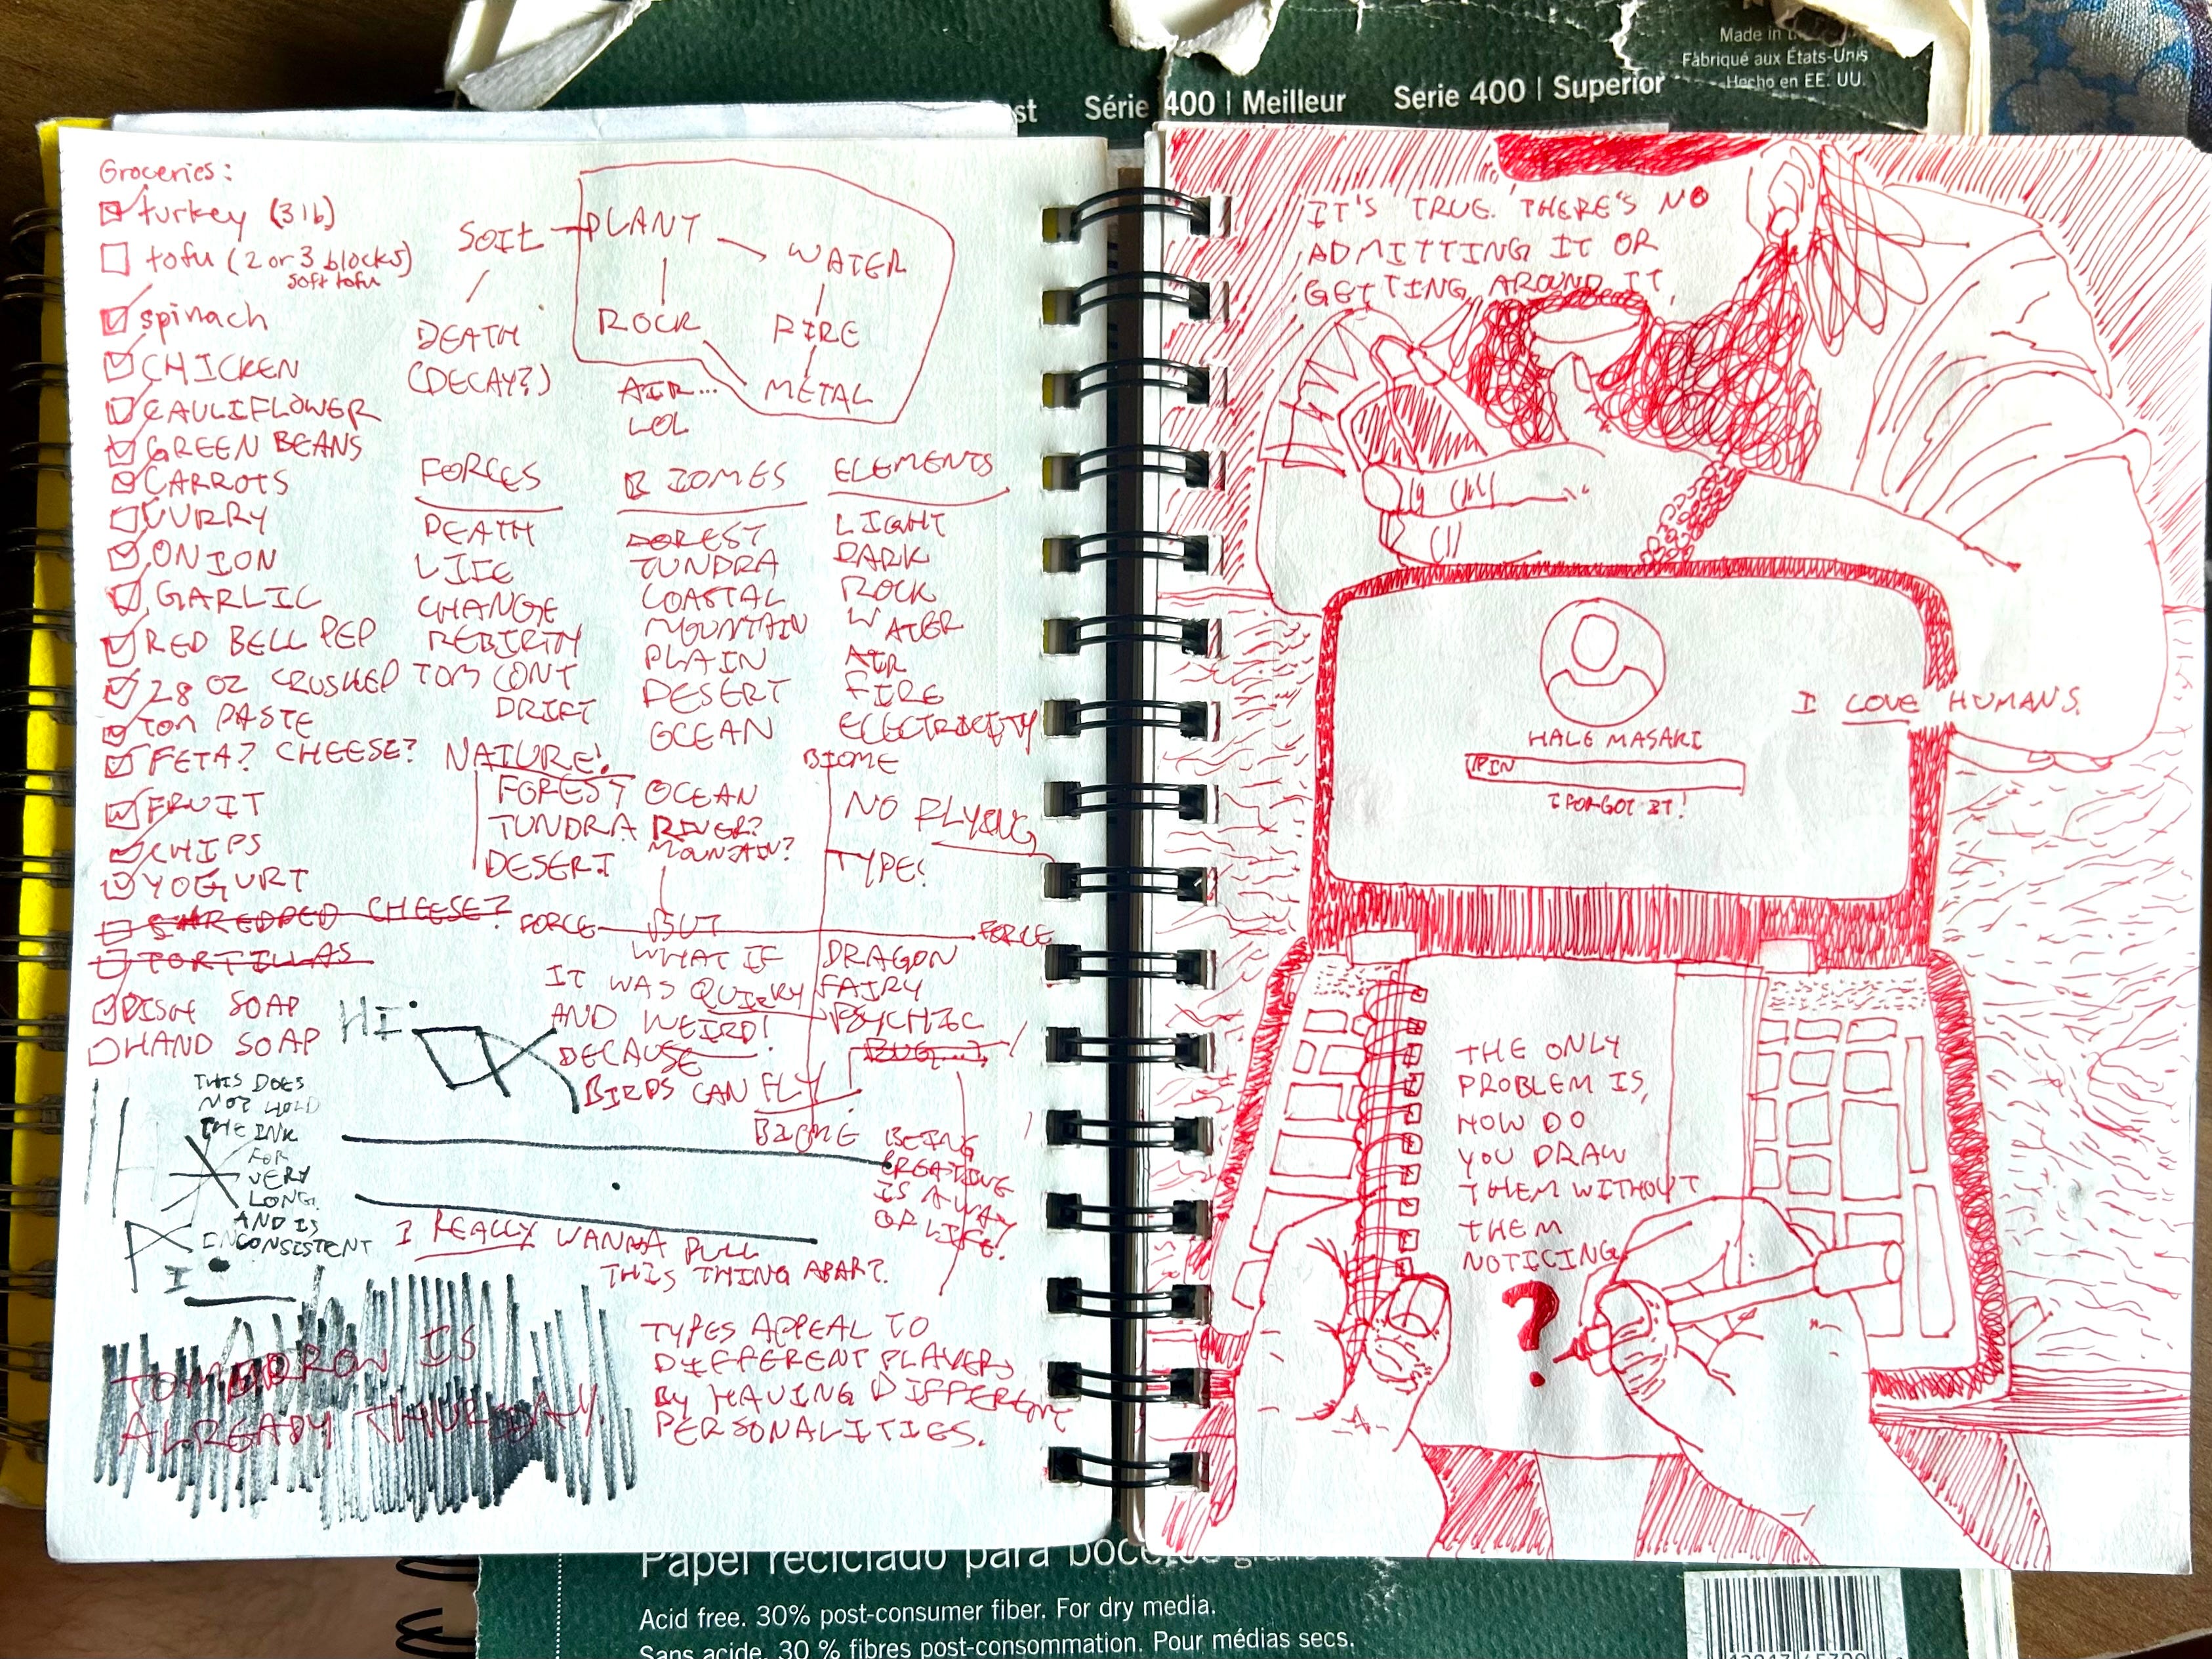 Made in
Fabriqué aux États-Unis
Hecho en EE. UU.
Série 400 | Meilleur
Serie 400 | Superior
Groceries:
turkey (3 lb)
tofu (2 or 3 blocks)
soft tofu
spinach
CHICKEN
CAULIFLOWER
GREEN BEANS
CARROTS
CURRY
ONION
GARLIC
RED BELL PEP
28 OZ CRUSHED TOM
TOM PASTE
FETA? CHEESE?
FRUIT
CHIPS
YOGURT
SHREDDED CHEESE?
TORTILLAS
DISH SOAP
HAND SOAP
SOIL
PLANT
WATER
ROCK
FIRE
METAL
DEATH
(DECAY?)
AIR...
LOL
FORCES
DEATH
LIFE
CHANGE
REBIRTH
CONT
DRIFT
BIOMES
FOREST
TUNDRA
COASTAL
MOUNTAIN
PLAIN
DESERT
OCEAN
ELEMENTS
LIGHT
DARK
ROCK
WATER
AIR
FIRE
ELECTRICITY
NATURE!
FOREST OCEAN
TUNDRA RIVER?
DESERT MOUNTAIN?
BIOME
NO FLYING
TYPE!
FORCE
FORCE
BUT
WHAT IF
IT WAS QUIRKY
AND WEIRD!
BECAUSE
BIRDS CAN FLY
DRAGON
FAIRY
PSYCHIC
BUG...
BIOME
BEING
CREATIVE
IS A WAY
OF LIFE!
HI
THIS DOES
NOT HOLD
THE INK
FOR
VERY
LONG.
AND IS
INCONSISTENT
I REALLY WANNA PULL
THIS THING APART.
TOMORROW IS
ALREADY THURSDAY.
TYPES APPEAL TO
DIFFERENT PLAYERS
BY HAVING DIFFERENT
PERSONALITIES.
IT'S TRUE. THERE'S NO
ADMITTING IT OR
GETTING AROUND IT,
I LOVE HUMANS.
HALE MASAKI
PIN
I FORGOT IT!
THE ONLY
PROBLEM IS,
HOW DO
YOU DRAW
THEM WITHOUT
THEM
NOTICING
?
Papel reciclado para bocetos
Acid free. 30% post-consumer fiber. For dry media.
Sans acide. 30 % fibres post-consommation. Pour médias secs.